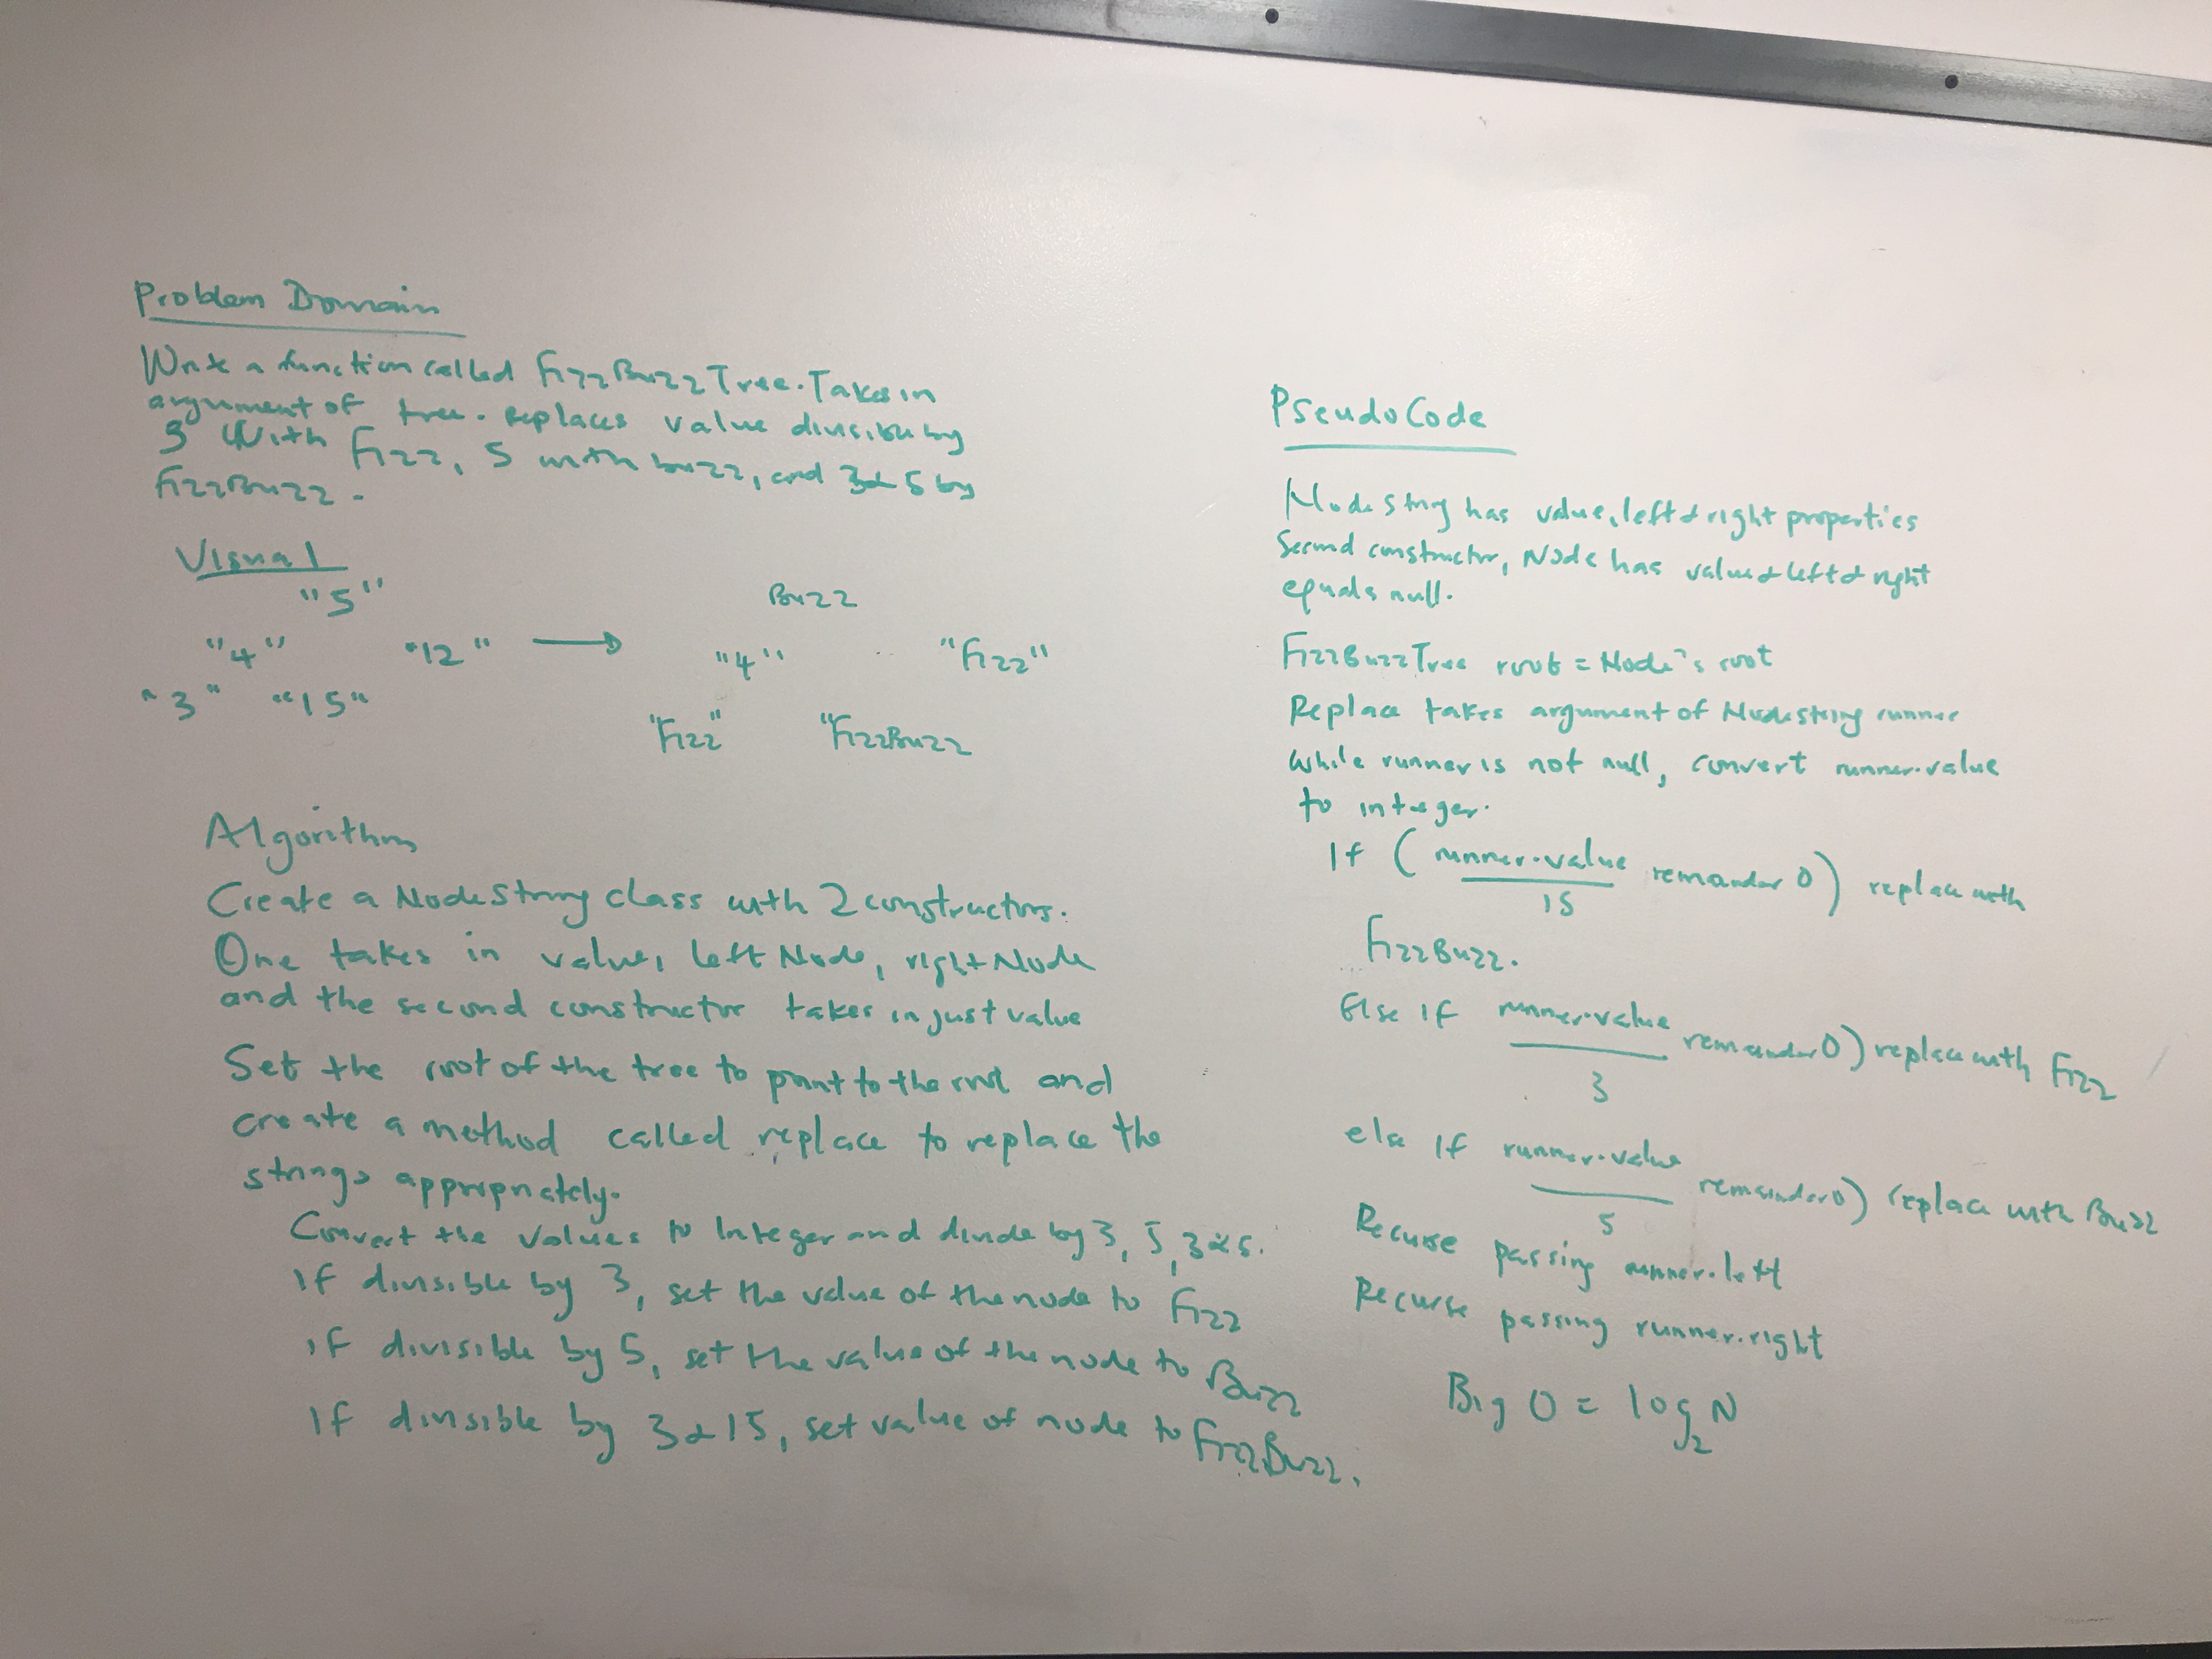 Problem Domain
Write a function called FizzBuzzTree. Takes in
argument of tree. Replaces value divisible by
3 With Fizz, 5 with buzz, and 3 & 5 by
FizzBuzz.
Visual
"5"
"4" "12" →
"3" "15"
Buzz
"4" "Fizz"
"Fizz" "FizzBuzz
Algorithm
Create a NodeString class with 2 constructors.
One takes in value, left Node, right Node
and the second constructor takes in just value
Set the root of the tree to point to the root and
create a method called replace to replace the
strings appropriately.
Convert the values to Integer and divide by 3, 5, 3 & 5.
If divisible by 3, set the value of the node to Fizz
if divisible by 5, set the value of the node to Buzz
If divisible by 3 & 15, set value of node to FizzBuzz.
PseudoCode
NodeString has value, left & right properties
Second constructor, Node has value & left & right
equals null.
FizzBuzzTree root = Node's root
Replace takes argument of NodeString runner
While runner is not null, convert runner.value
to integer.
If ( runner.value / 15 remainder 0) replace with
FizzBuzz.
Else if runner.value / 3 remainder 0) replace with Fizz
else if runner.value / 5 remainder 0) replace with Buzz
Recurse passing runner.left
Recurse passing runner.right
Big O = log₂ N